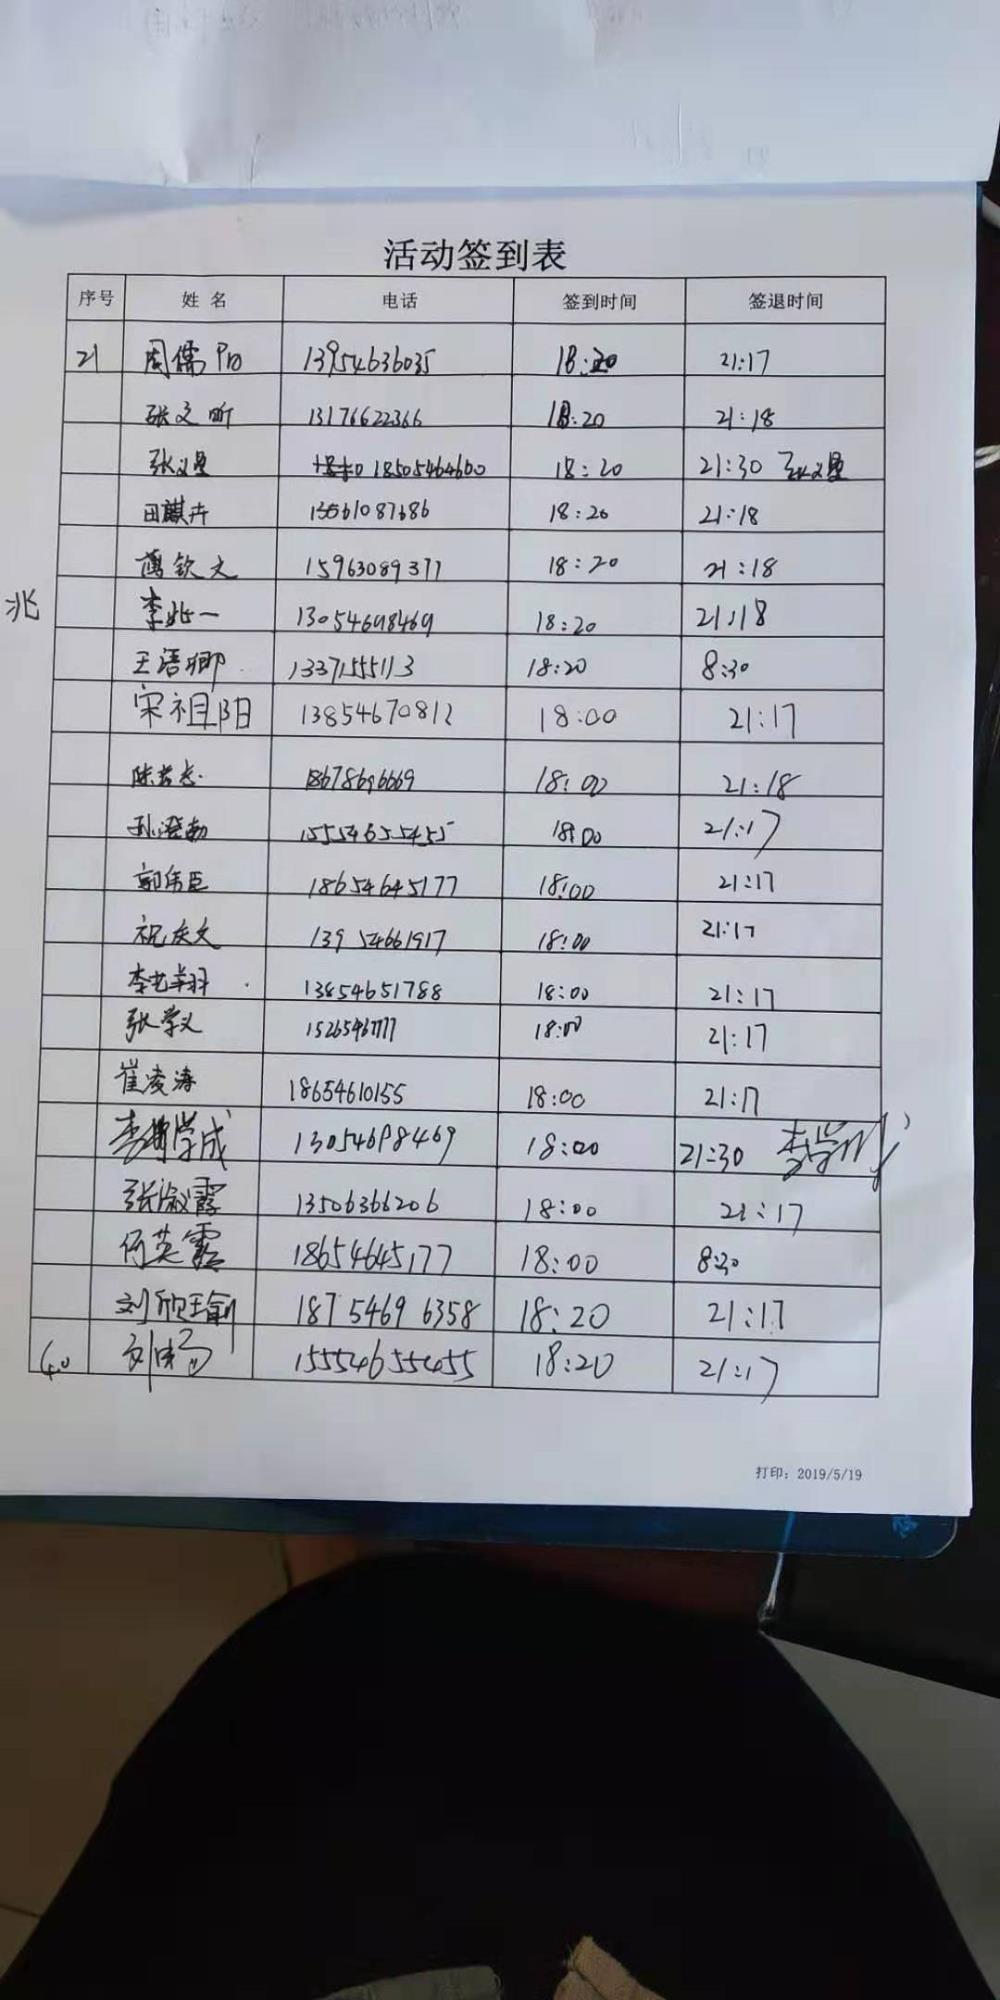 活动签到表
序号 姓名 电话 签到时间 签退时间
21 周儒阳 13954636035 18:20 21:17
张文昕 13176622366 18:20 21:18
张义墨 18505464600 18:20 21:30 张义墨
田麒卉 13561087686 18:20 21:18
蔺钦文 15963089377 18:20 21:18
兆 李兆一 13054698469 18:20 21:18
王语卿 13371555113 18:20 8:30
宋祖阳 13854670812 18:00 21:17
18678696669 18:00 21:18
孙澄勃 15554655455 18:00 21:17
郭伟臣 18654645177 18:00 21:17
祝庆文 13954661917 18:00 21:17
李艺翔 13854651788 18:00 21:17
张学义 18:00 21:17
崔凌涛 18654610155 18:00 21:17
李学成 13054698469 18:00 21:30
张淑霞 13506366206 18:00 21:17
何英霞 18654645177 18:00 8:30
刘欣瑜 18754696358 18:20 21:17
40 15554655455 18:20 21:17
打印：2019/5/19